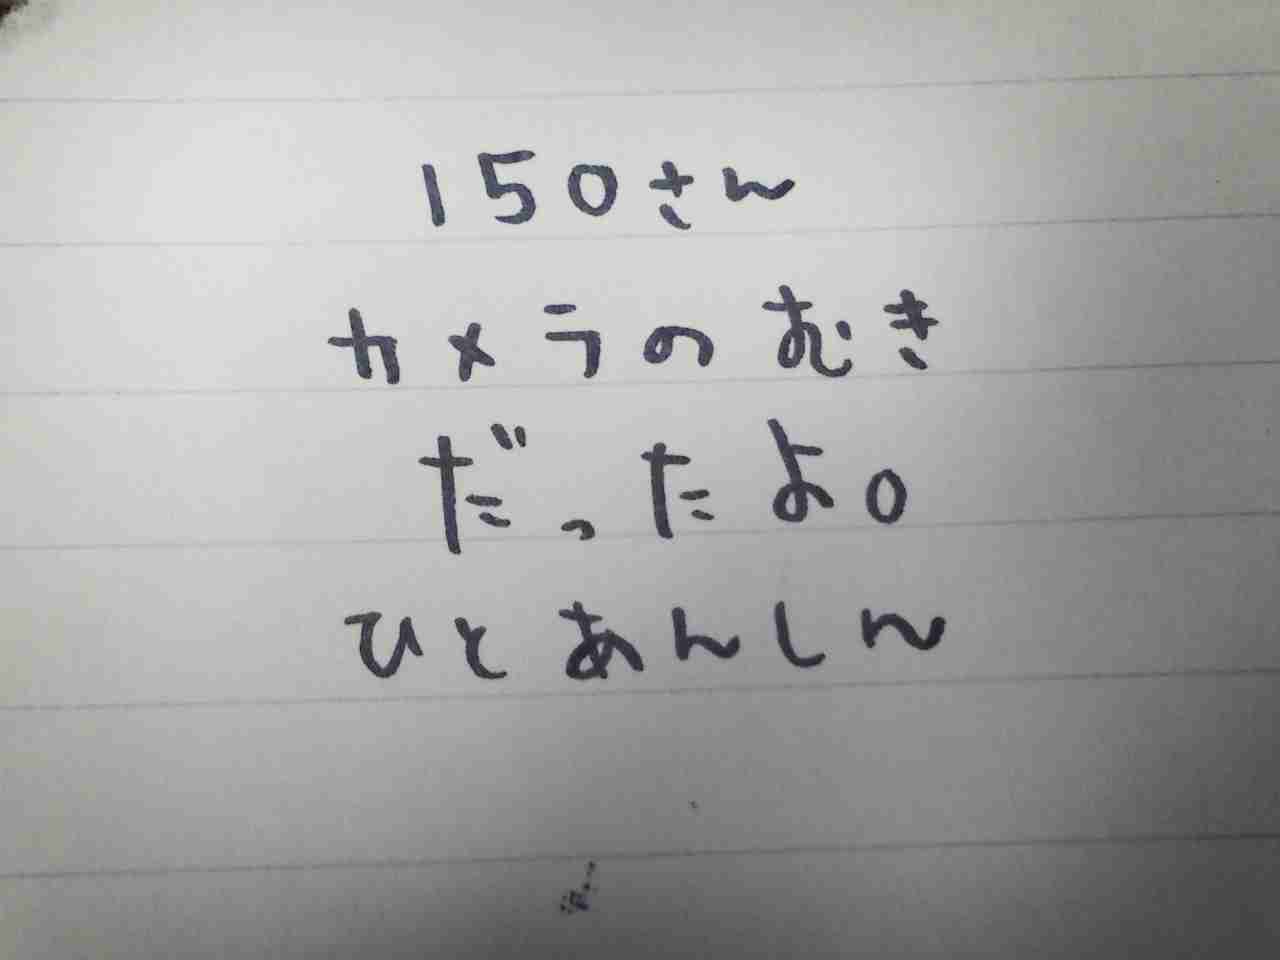 150さん
カメラのむき
だったよ。
ひとあんしん